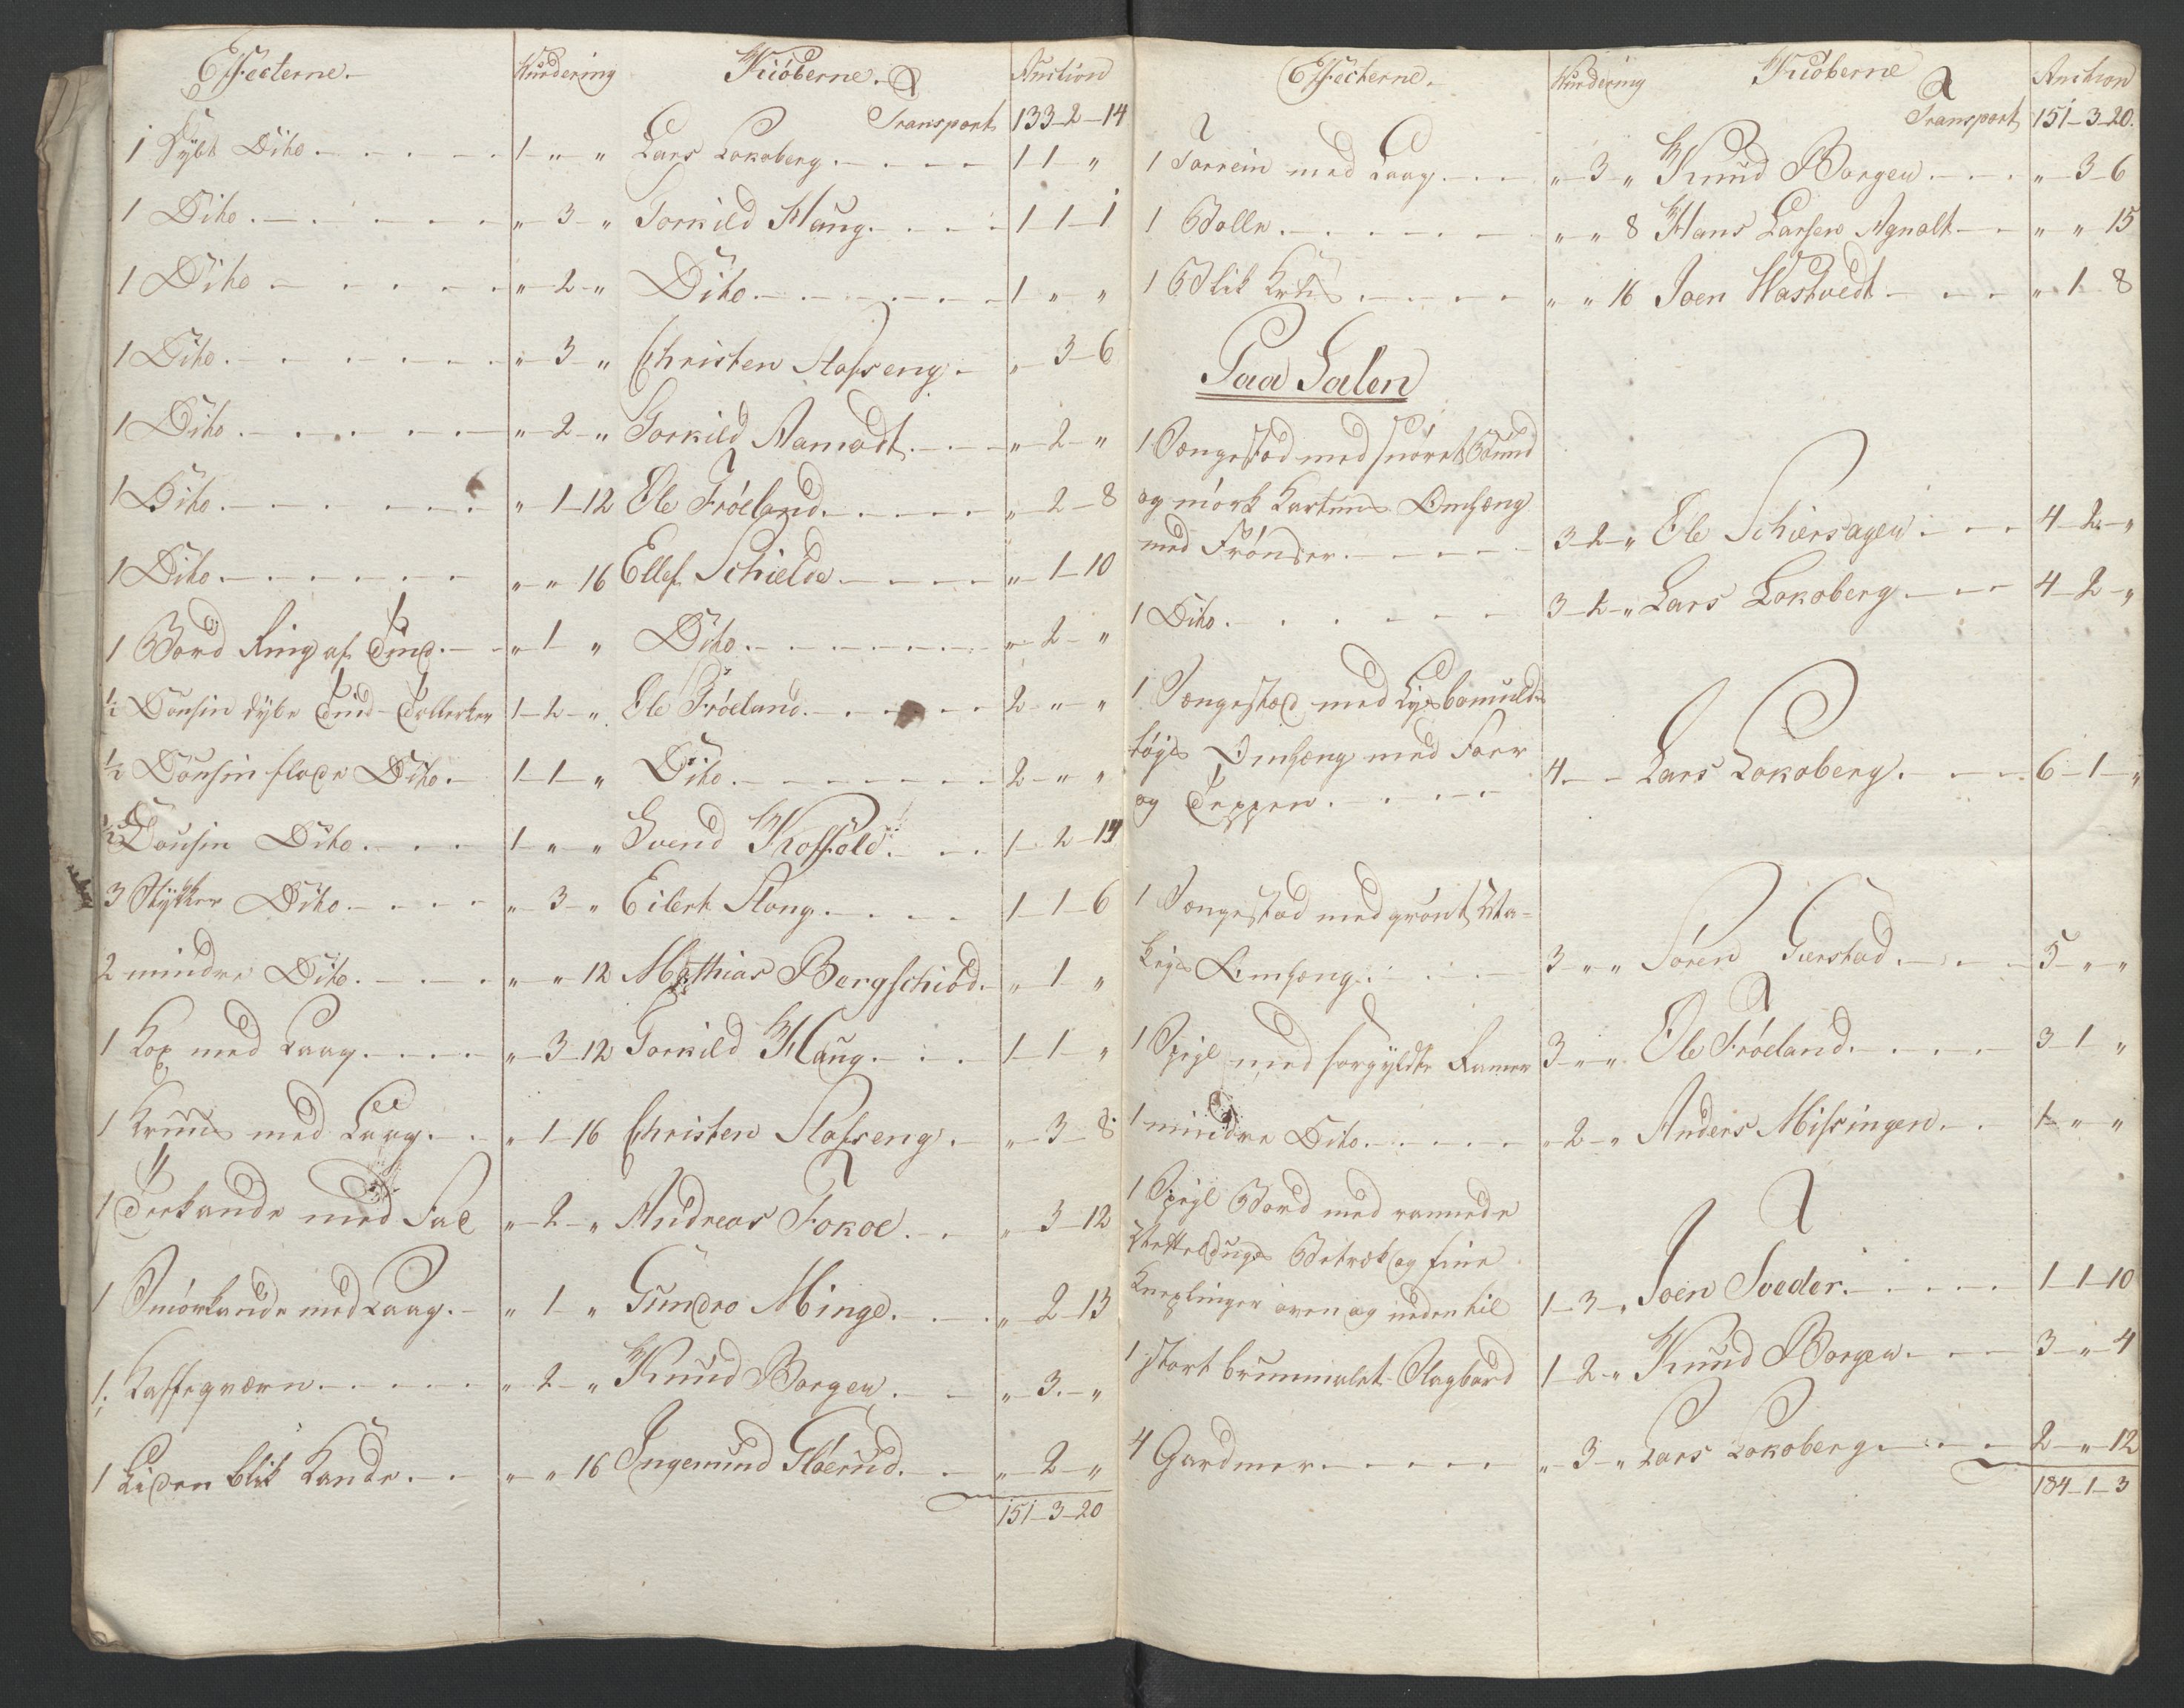 Effecterne. Wurdering Kiöberne. Auction
Transport 133-2-14
1 Dybt Dito 1 " " Lars Lokoberg 1 1 "
1 Dito " 3 " Torkild Haug 1-1-1
1 Dito " 2 " Dito 1 " "
1 Dito " 3 " Christen Stafseng " 3-6
1 Dito " 2 " Torkild Aamodt " 2 "
1 Dito " 1-12 Ole Fröeland " 2-8
1 Dito " " 16 Ellef Schielde " 1-10
1 Bord Ring af Tind " 1 " Dito " 2 "
1/2 Dousin dybe Tind-Tallerken 1-2 " Ole Fröeland 2 " "
1/2 Dousin flade Dito 1-1 " Dito 2 " "
1/2 Dousin Dito 1 " " Svend Kossöld 1-2-14
3 Stykker Dito " 3 " Eilert Stang 1-1-6
2 mindre Dito " " 12 Mathias Bergschiöd " 1 "
1 Kop med Laag " 3-12 Torkild Haug 1-1 "
1 Kruus med Laag " 1-16 Christen Stafseng " 3-8
1 Teekande med Fad " 2 " Andreas Fokoe " 3-12
1 Smörkande med Laag " 1 " Gundro Minge " 2-13
1 Kaffeqværn " 2 " Knud Borgen " 3 "
1 Liden blik Kande " " 16 Ingemund Gloerud " 2 "
151-3-20
Effecterne. Wurdering Kiöberne Auction
Transport 151-3-20.
1 Torrein med Laag " 3 " Knud Borgen " 3-6
1 Bolle " " 8 Hans Larsen Agnalt " " 15
1 Blik " " 16 Joen Wastvedt " 1-8
Paa Salen
1 Sængestæd med snöret Bund
og mörk Kartuns Omhæng
med Frönser 3-2 " Ole Schiersagen 4-2 "
1 Dito 3-2 " Lars Lokoberg 4-2 "
1 Sængestæd med Lys bomulds
töjs Omhæng med Foer
og Teppen 4 - - Lars Lokoberg 6-1 "
1 Sængestæd med grönt Sta-
Omhæng 3 " " Sören Gierstad 5 " "
1 Spejl med forgyldte Ramer 3 " " Ole Fröeland 3-1 "
1 mindre Dito " 2 " Anders Missingen 1 " "
1 Spejl Bord med rannede
Netteldugs Betræk og fine
Kneplinger oven og nedentil 1-3 " Joen Soeder 1-1-10
1 stort bruunmalet Slagbord 1-2 " Knud Borgen 3 " 4
4 Gardiner " 3 " Lars Lokoberg 2 " 12
184-1-3